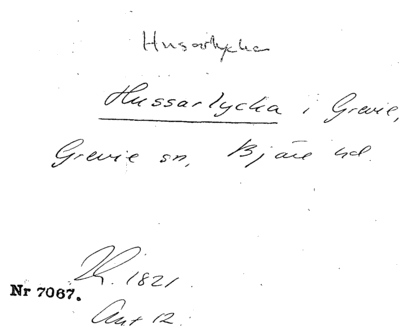 Husarlycka
Hussarlycka i Grevie,
Grevie sn, Bjäre hd.
1821.
Nr 7067.
Akt 12.